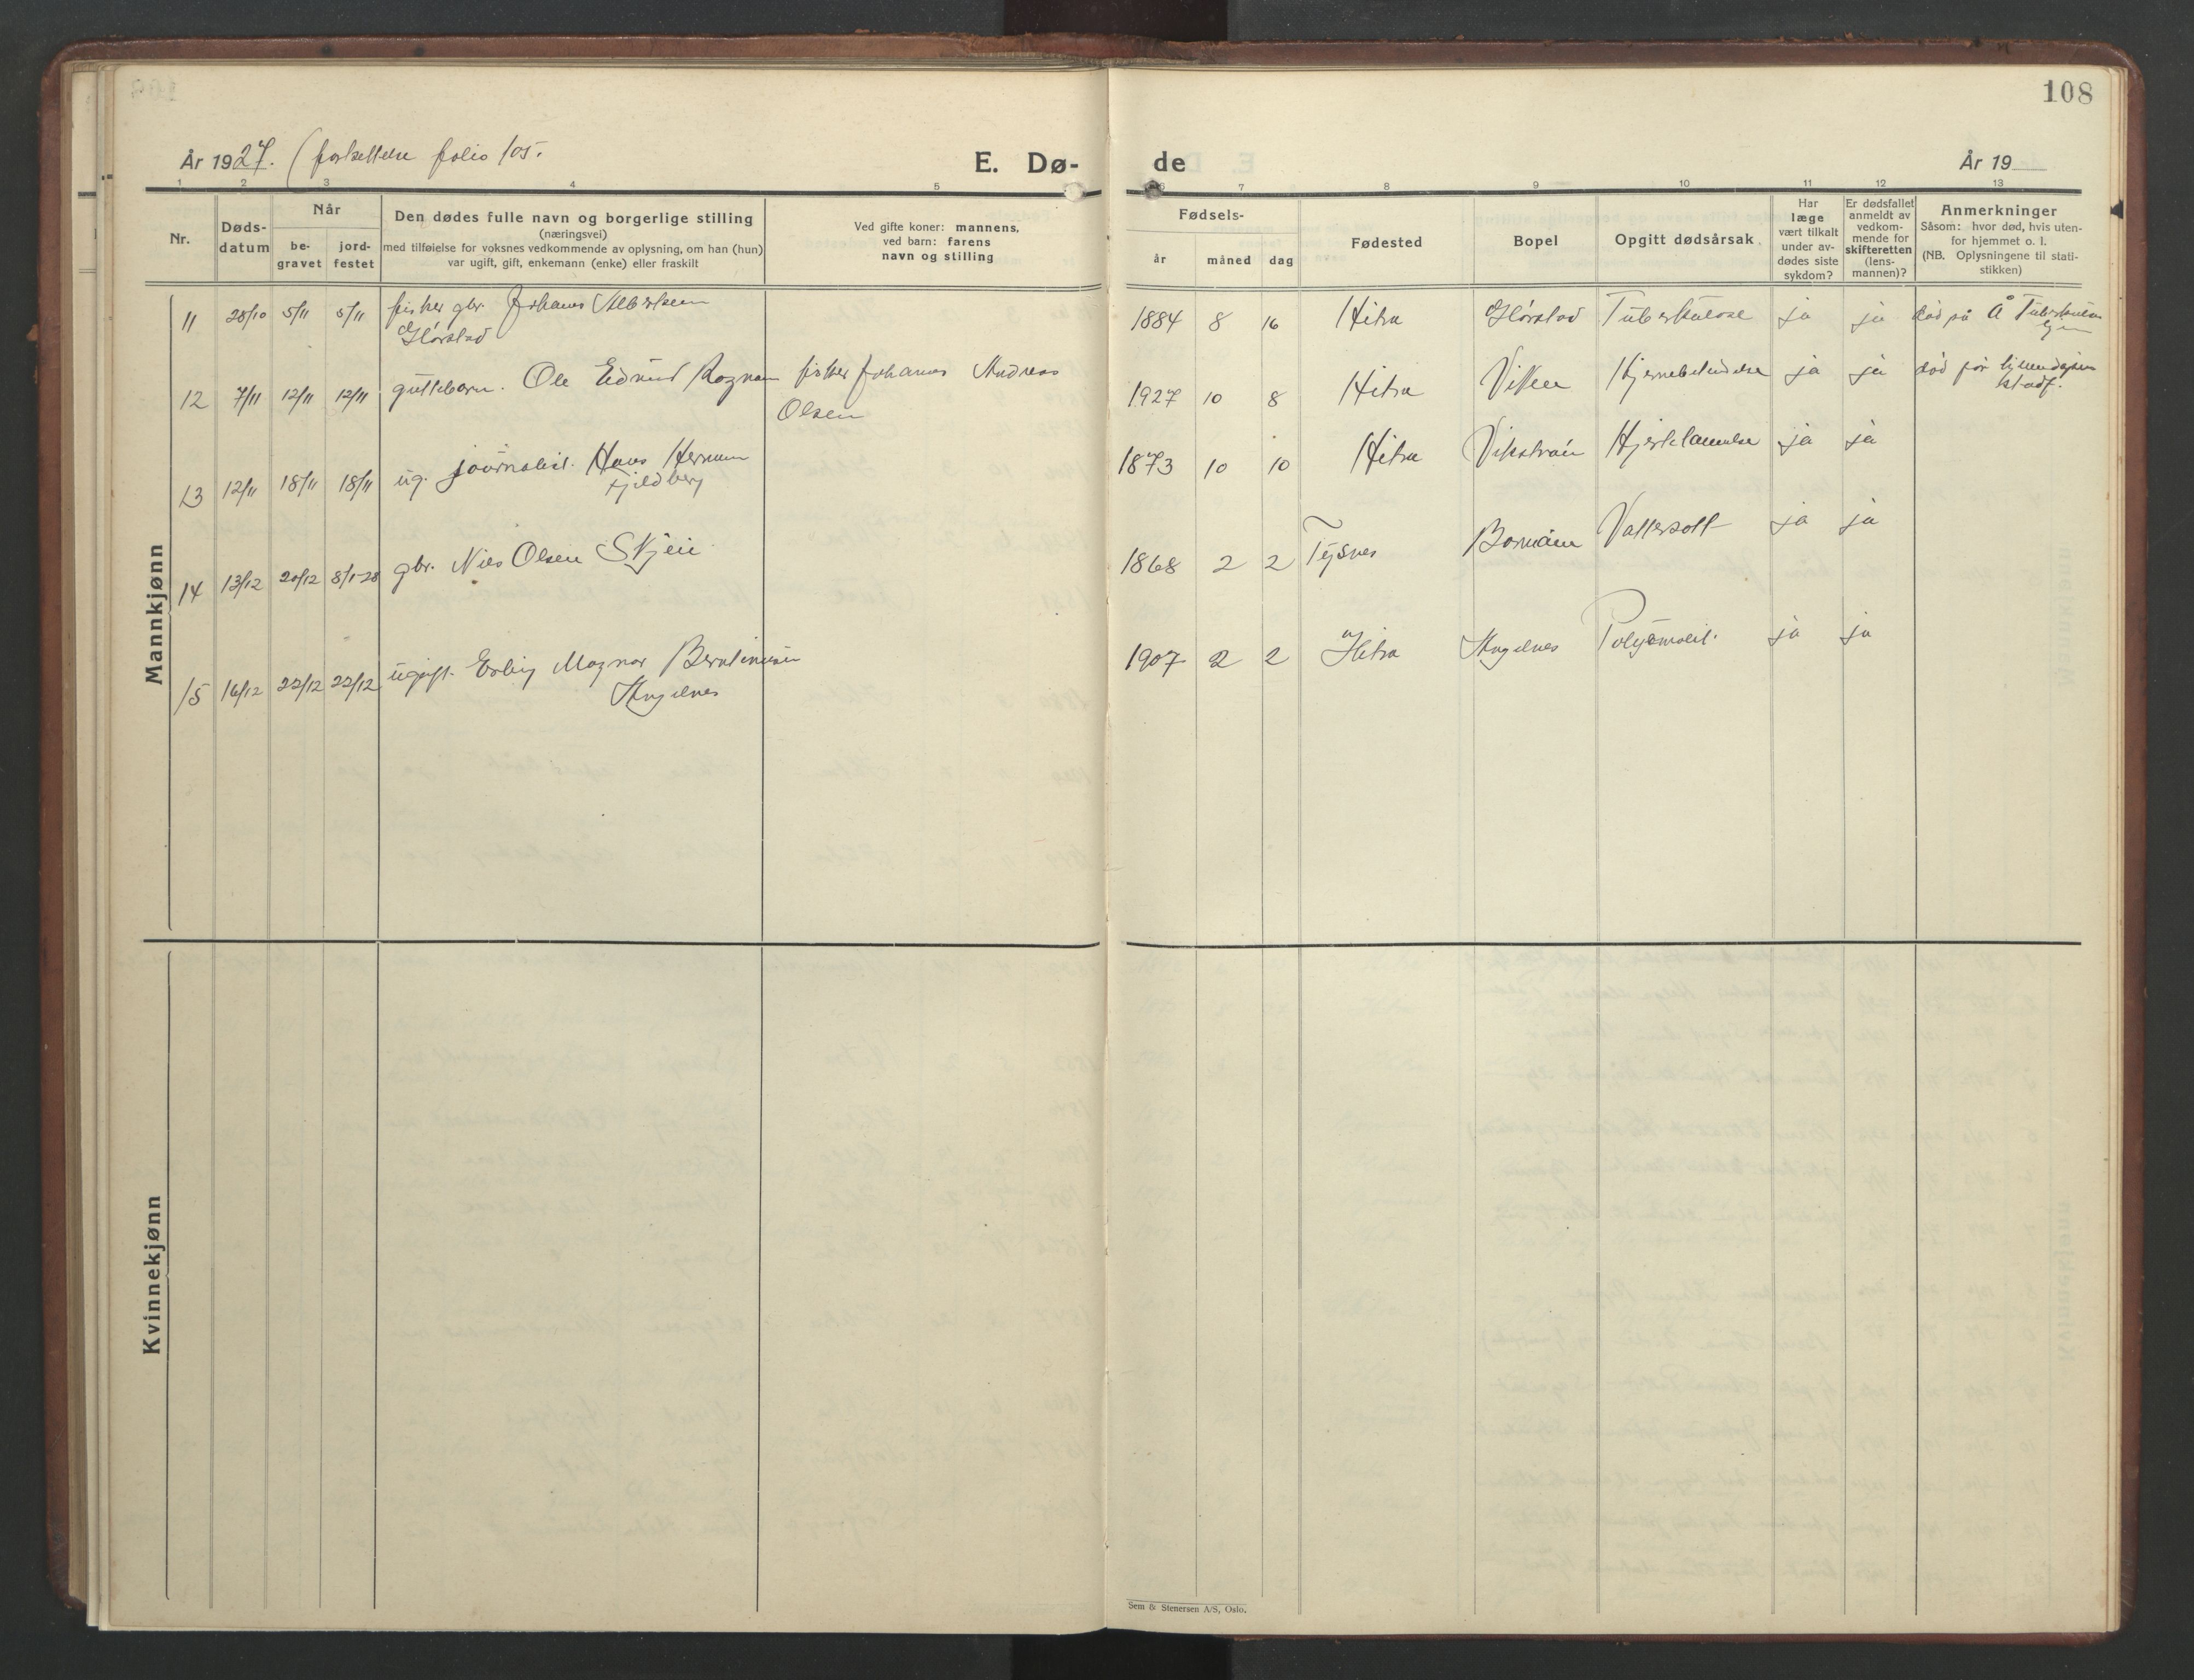 108
År 1927. (fortsettelse folio 105.
E. Dø-
de
År 19
1 2 3 4 5 6 7 8 9 10 11 12 13
Nr.
Døds-
datum
Når
be-
gravet
jord-
festet
Den dødes fulle navn og borgerlige stilling
(næringsvei)
med tilføielse for voksnes vedkommende av oplysning, om han (hun)
var ugift, gift, enkemann (enke) eller fraskilt
Ved gifte koner: mannens,
ved barn: farens
navn og stilling
Fødsels-
år måned dag
Fødested
Bopel
Opgitt dødsårsak
Har
læge
vært tilkalt
under av-
dødes siste
sykdom?
Er dødsfallet
anmeldt av
vedkom-
mende for
skifteretten
(lens-
mannen)?
Anmerkninger
Såsom: hvor død, hvis uten-
for hjemmet o. l.
(NB. Oplysningene til stati-
stikken)
Mannkjønn
11 28/10 5/11 5/11 fisker gbr. Johans Albertsen 1884 8 16 Hitra Tuberkulose ja ja død på Å
12 7/11 12/11 12/11 guttebarn. Ole Edmund Ragnar fisker Johannes Andreas
Olsen
1927 10 8 Hitra Viken Hjernebetendelse ja ja død før
13 12/11 18/11 18/11 ug. journalist. Hans Herman
Fjeldberg
1873 10 10 Hitra Vikstrøm Hjertelammelse ja ja
14 13/12 20/12 8/1-28 gbr. Nils Olsen Skjeie 1868 2 2 Tysnes Vattersott ja ja
15 16/12 22/12 22/12 ugift. Erling Magnar Berntinusen
1907 2 2 Hitra ja ja
Kvinnekjønn
Sem & Stenersen A/S, Oslo.